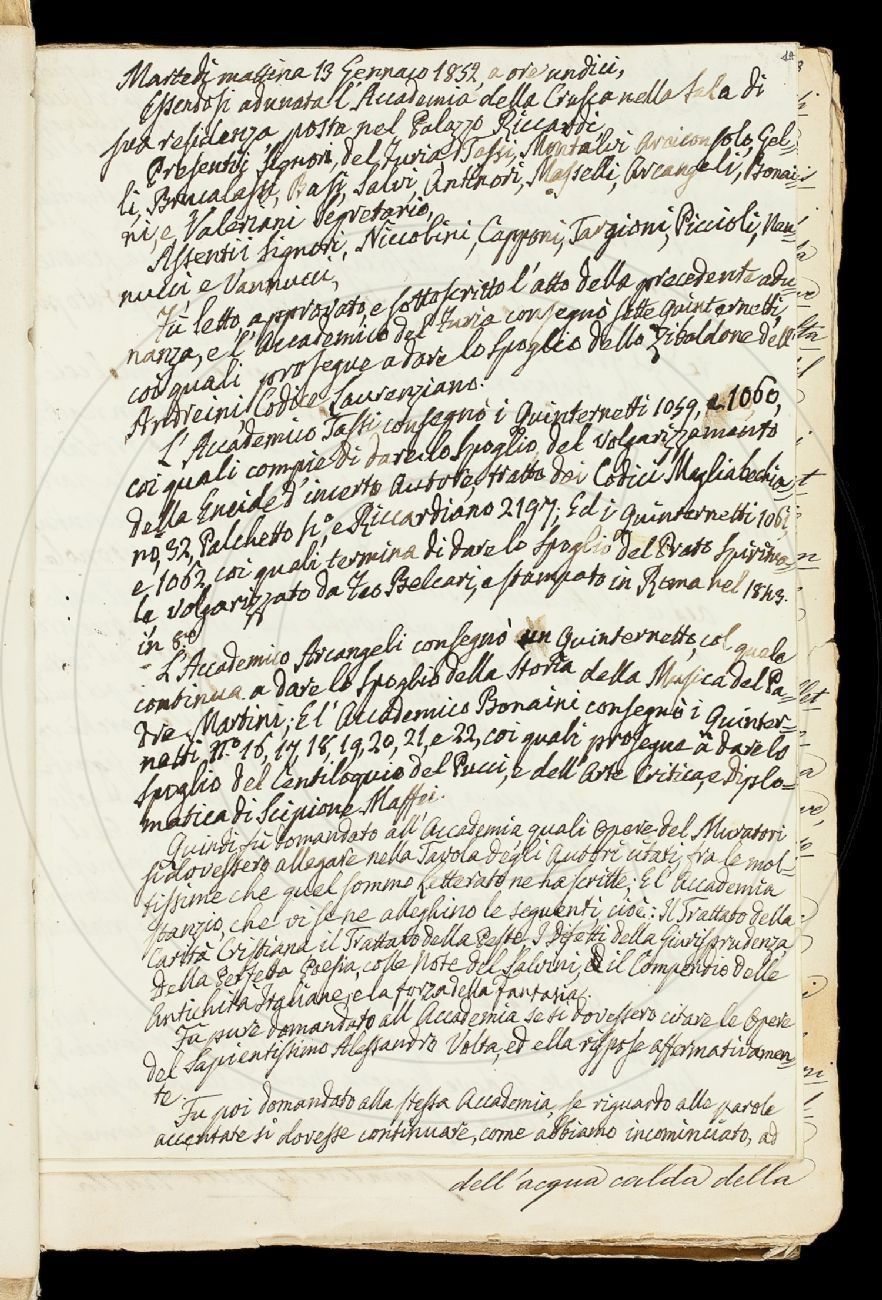 Martedì mattina 13 Gennaio 1852, a ore undici,
Essendosi adunata l'Accademia della Crusca nella Sala di
sua residenza posta nel Palazzo Riccardi
Presenti i Signori, del Furia, Tassi, Montalvi Arciconsolo, Gel-
li, Brucalassi, Basi, Salvi, Antinori, Masselli, Arcangeli, Bonai-
ni, e Valeriani Segretario,
Assenti i Signori, Niccolini, Capponi, Targioni, Piccioli, Nan-
nucci e Vannucci,
Fù letto, approvato, e sottoscritto l'atto della precedente adu-
nanza, e l'Accademico del Furia consegnò sette Quinternetti,
coi quali prosegue a dare lo spoglio dello Zibaldone dell'
Andreini Codice Laurenziano.
L'Accademico Tassi consegnò i Quinternetti 1059, e 1060,
coi quali compie di dare lo spoglio del Volgarizzamento
della Eneide d'incerto Autore, tratto dai Codici Magliabechia-
no, 32, Palchetto e Riccardiano 2197; Ed i Quinternetti 1061
e 1062, coi quali termina di dare lo spoglio del Prato Spiritua-
le volgarizzato da Feo Belcari, e stampato in Roma nel 1843.
in 8º
L'Accademico Arcangeli consegnò un Quinternetto, col quale
continua a dare lo spoglio della Storia della Musica del Pa-
dre Martini; E l'Accademico Bonaini consegnò i Quinter-
netti Nº 16, 17, 18, 19, 20, 21, e 22, coi quali prosegue a dare lo
spoglio del Centiloquio del Pucci, e dell'Arte Critica, e diplo-
matica di Scipione Maffei.
Quindi fù domandato all'Accademia quali Opere del Muratori
si dovessero allegare nella Tavola degli Autori citati, fra le mol-
tissime che quel sommo Letterato ne ha scritte; E l'Accademia
stanziò, che vi se ne alleghino le seguenti, cioè: Il Trattato della
Carità Cristiana il Trattato della Peste, I Difetti della Giurisprudenza,
Della Perfetta Poesia, colle Note del Salvini, il Compendio delle
Antichità Italiane, e la forza della fantasia.
Fu pure domandato all'Accademia se si dovessero citare le Opere
del Sapientissimo Alessandro Volta, ed ella rispose affermativamen-
te.
Fu poi domandato alla stessa Accademia, se riguardo alle parole
accentate si dovesse continuare, come abbiamo incominciato, ad
dell'acqua calda della